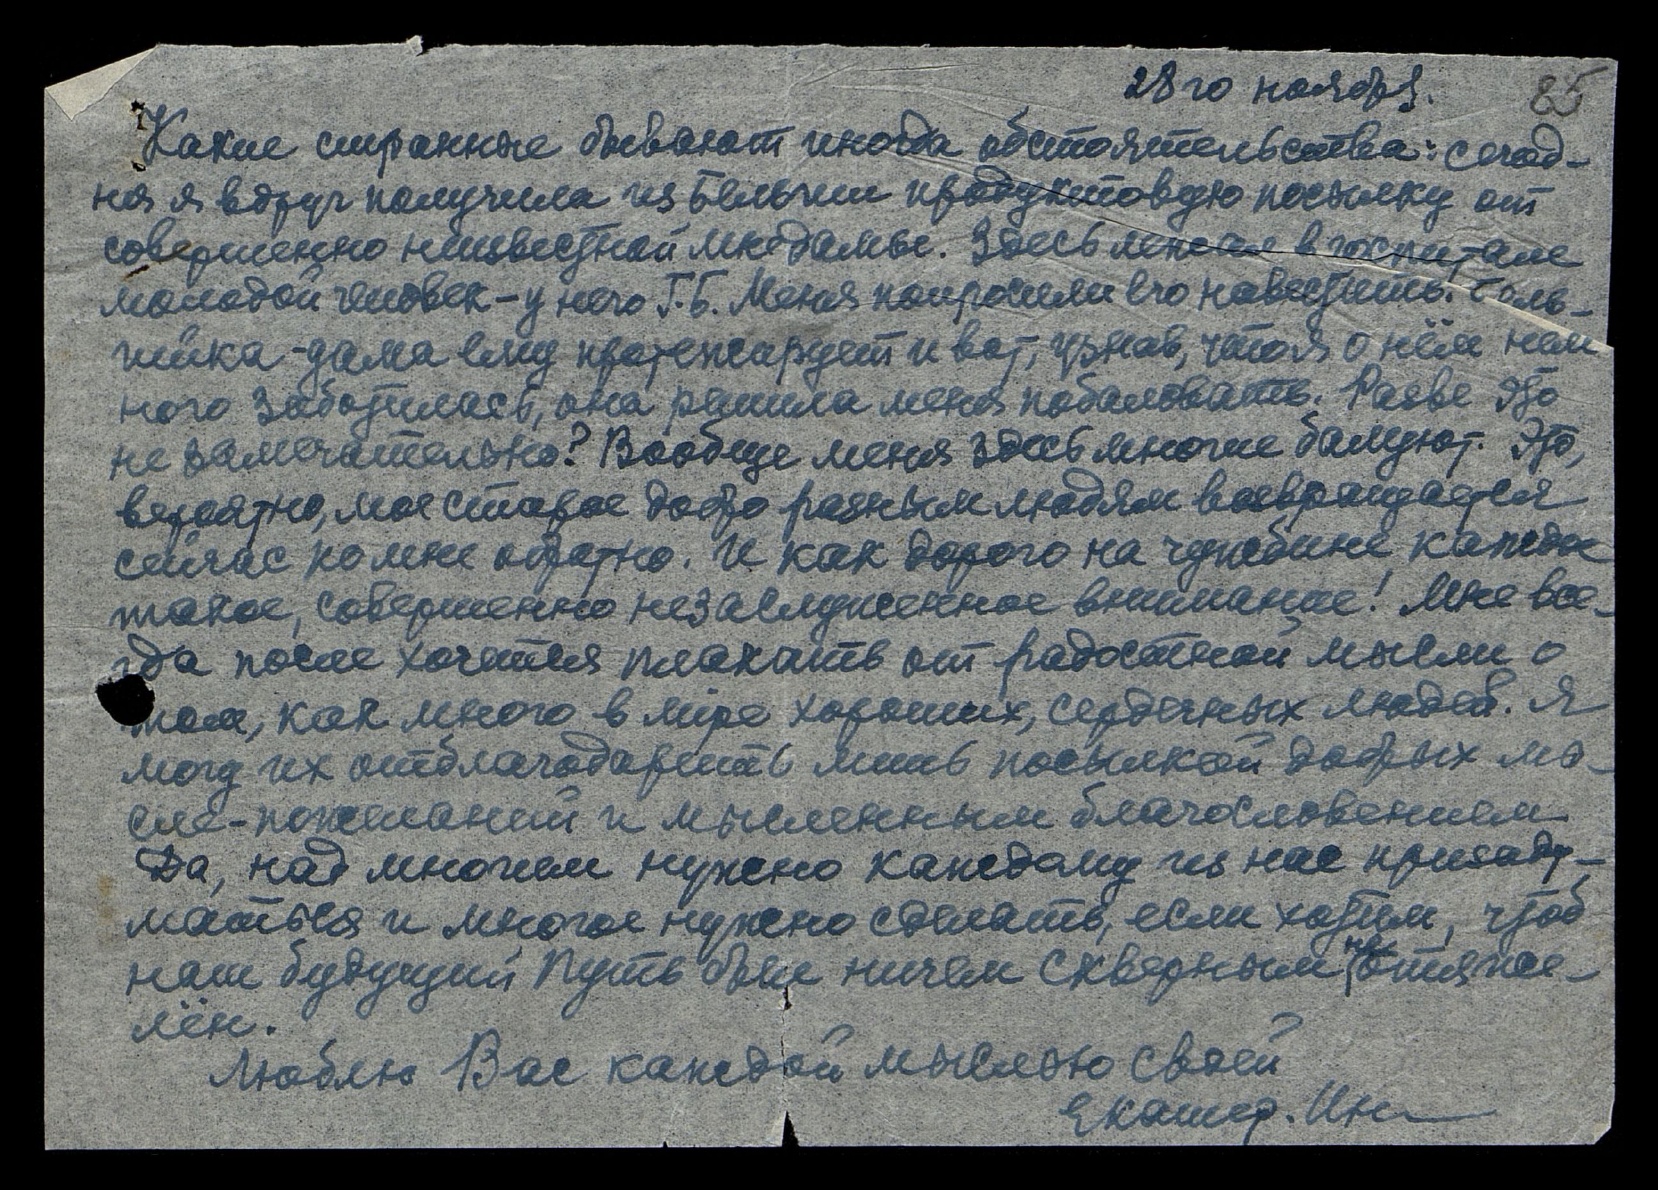 28го ноября. 85
Какие странные бывают иногда обстоятельства: сегод-
ня я вдруг получила из Бельгии продуктовую посылку от
совершенно неизвестной мне дамы. Здесь лежал в госпитале
молодой человек – у него Т.Б. Меня попросили его навестить.
дама ему протежирует и вот, узнав, что я о нём нем
ного заботилась, она решила меня побаловать. Разве это
не замечательно? Вообще меня здесь многие балуют. Это,
вероятно, мое старое добро разным людям возвращается
сейчас ко мне обратно. И как дорого на чужбине каждое
такое, совершенно незаслуженное внимание! Мне все-
гда после хочется плакать от радостной мысли о
том, как много в мiре хороших, сердечных людей. Я
могу их отблагодарить лишь посылкой добрых мы-
сле-пожеланий и мысленным благословением
Да, над многим нужно каждому из нас призаду-
маться и многое нужно сделать, если хотим, чтоб
наш будущий путь был ничем скверным не отяже-
лён.
Люблю Вас каждой мыслью своей
Екатер. Ин